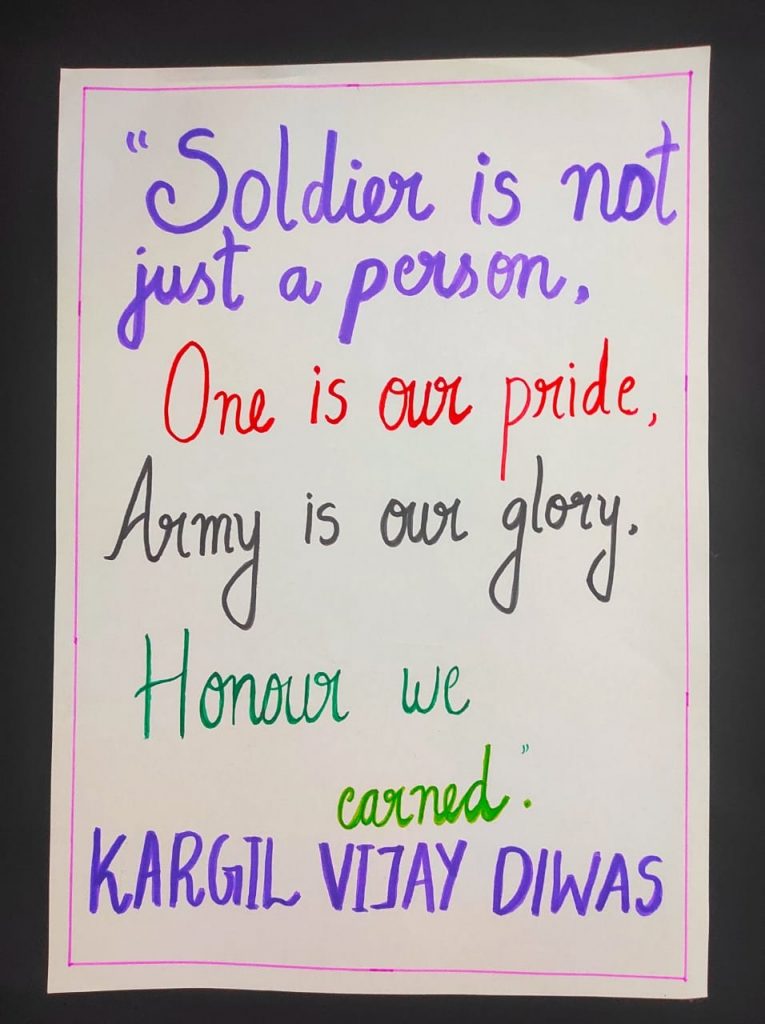 "Soldier is not
just a person,
One is our pride,
Army is our glory.
Honour we
earned".
KARGIL VIJAY DIWAS